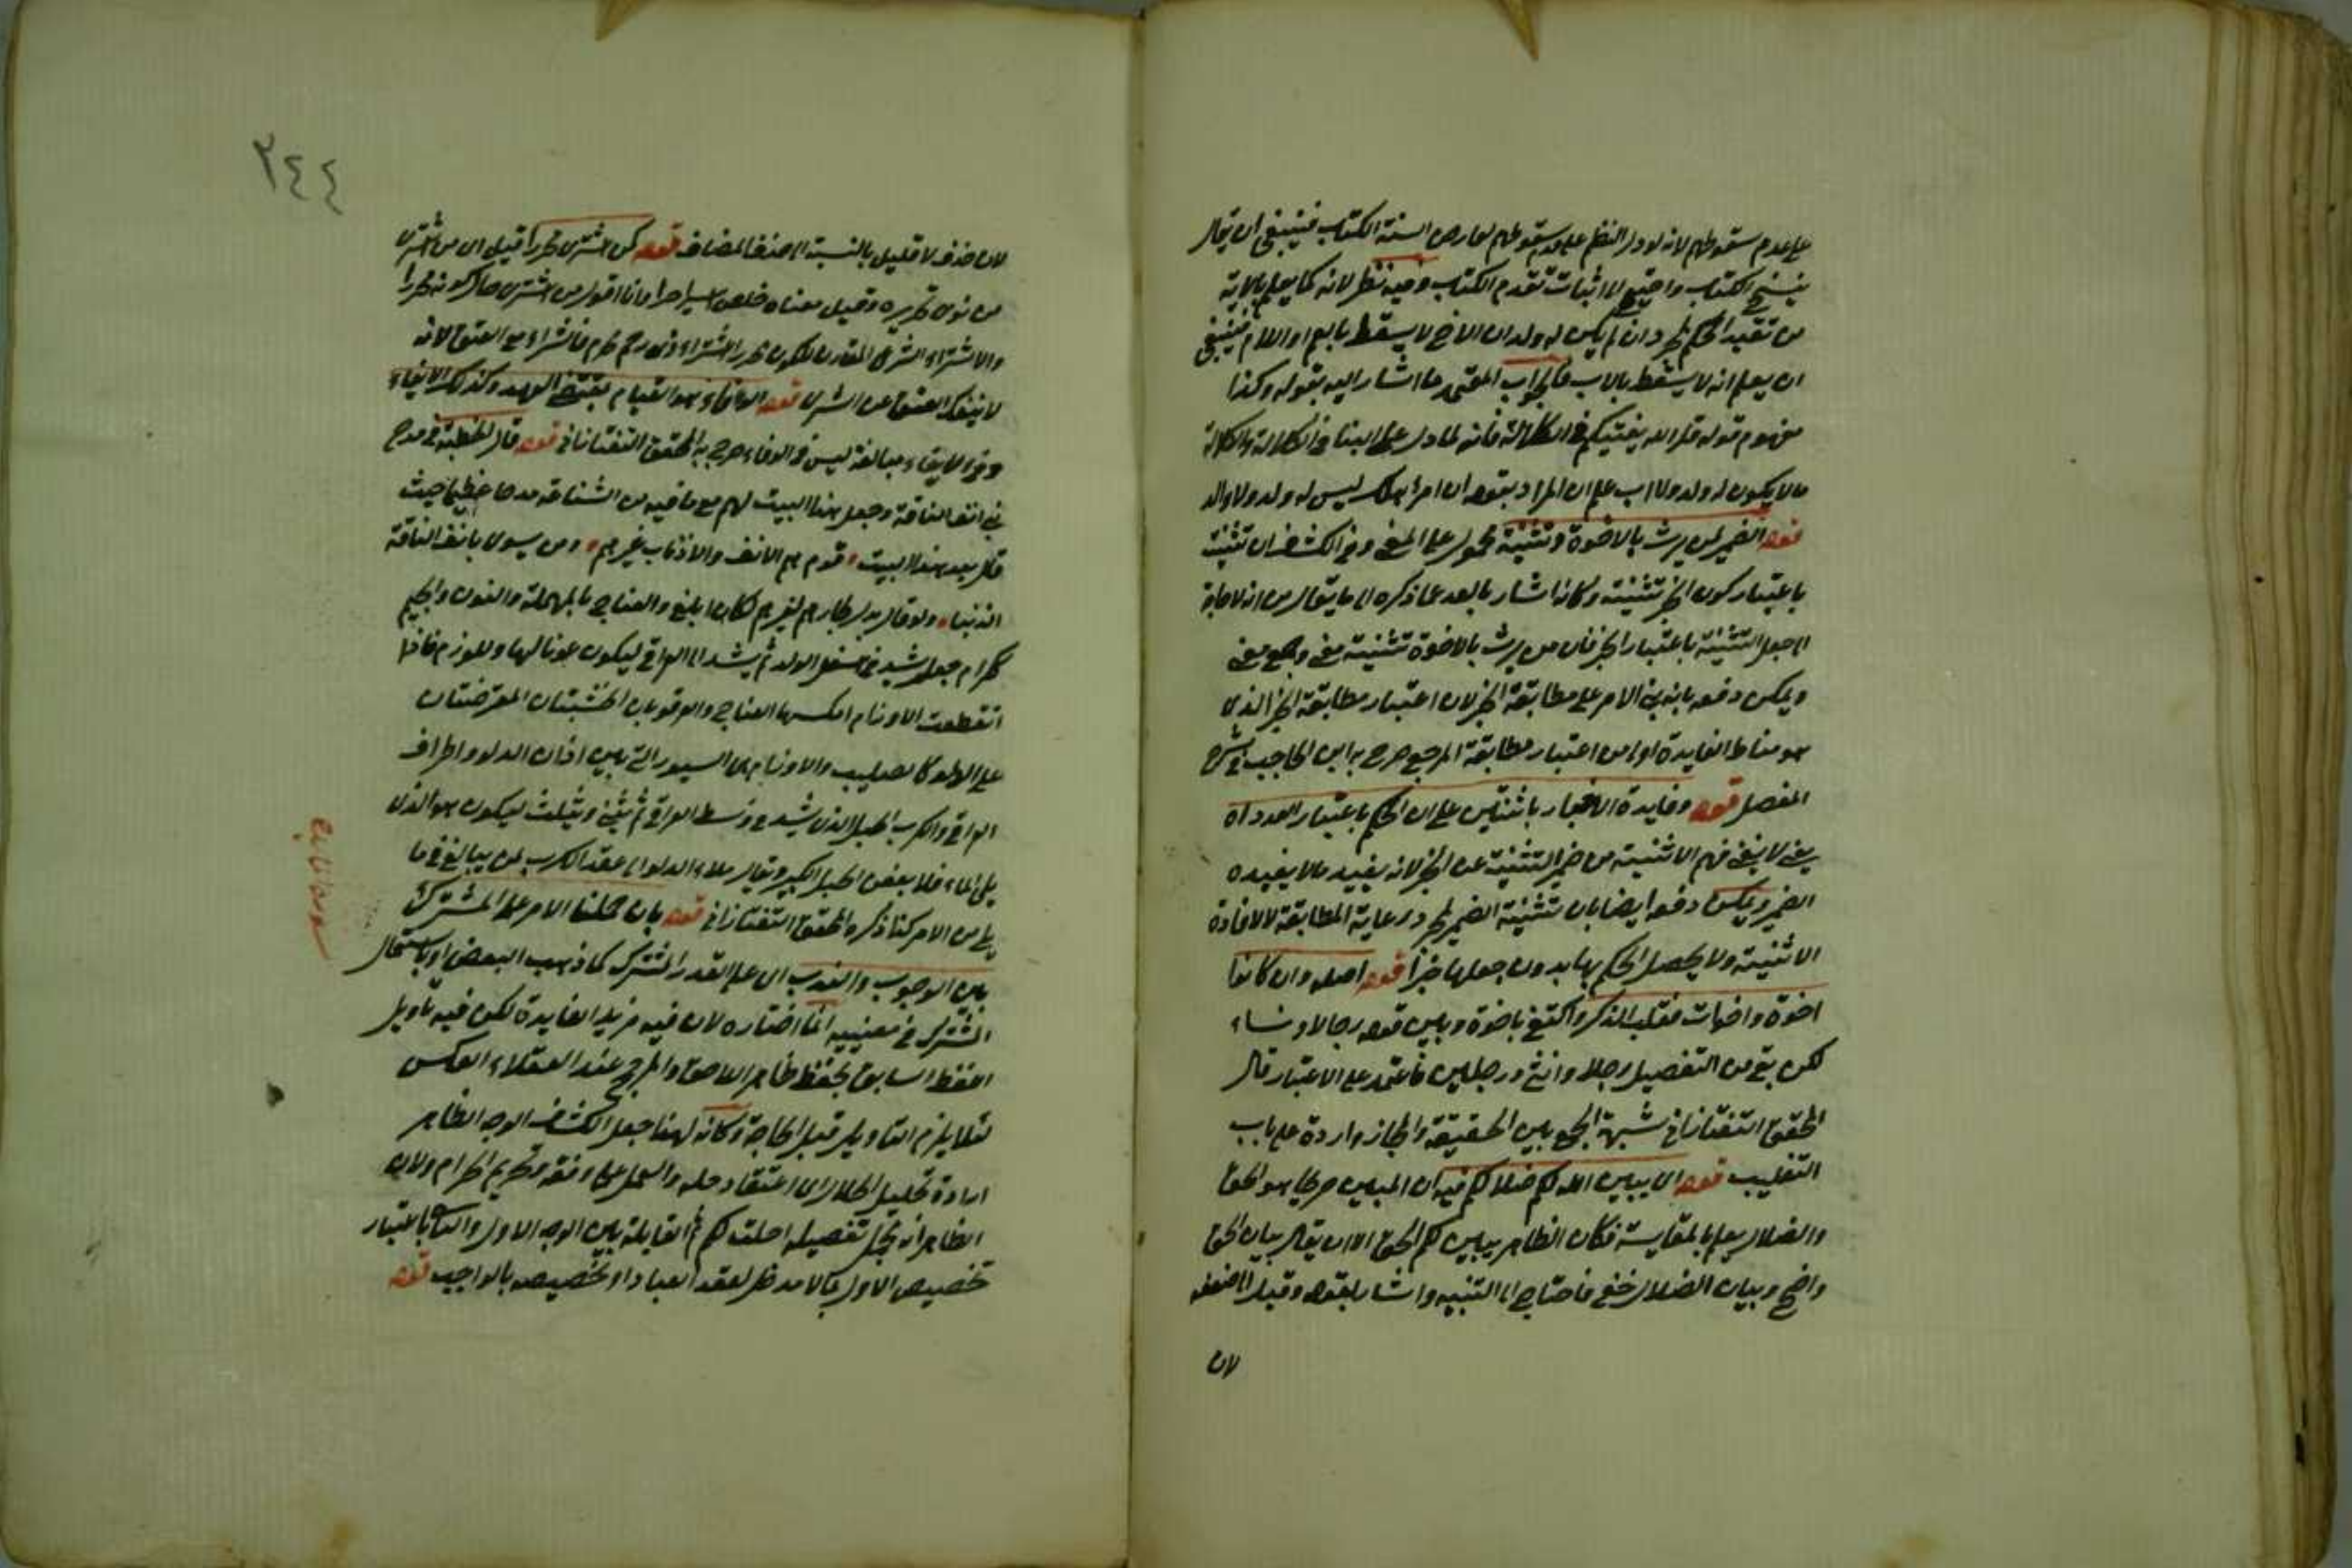 على عدم سقوطهم لانه لو دل النظم على عدم سقوطهم لعارض السنة الكتاب فينبغي ان يقال
بنسخ الكتاب واحتيج الى اثبات تقدم الكتاب وفيه نظر لانه كما يعلم بالاية
من تقييد الحكم بمجرد ان لم يكن له ولد ان الاخ لا يسقط بابع او اللام فينبغي
ان يعلم انه لا يسقط بالاب فالجواب المقتى ما اشار اليه بقوله وكذا
مفهوم قوله قل الله يفتيكم في الكلالة فانه لما دل على البنا في الكلالة والكلالة
ما لا يكون له ولد ولا اب علم ان المراد بقوله ان امرؤ هلك ليس له ولد ولا والد
قوله الضمير لمن يرث بالاخوة وتثنيته محمول على المعنى وفي الكشف ان تثنيته
باعتبار كون الخبر تثنيته وكانه اشار بالعد عما ذكره الى ما يقال من انه لا حاجة
الى جعل التثنية باعتبار الخبر فان من يرث بالاخوة تثنيته معنى وجمع معنى
ويمكن دفعه بانه بنى الامر على مطابقة الخبر لان اعتبار مطابقة الخبر الذي
هو مناط الفايدة اولى من اعتبار مطابقة المرجع صرح به ابن الحاجب في شرح
المفصل قوله وفايدة الاخبار باثنتين على ان الحكم باعتبار العدد اه
يعني لا يغني فهم الاثنينية من ضمير التثنية عن الخبر لانه يفيد ما لا يفيده
الضمير ويمكن دفعه ايضا بان تثنية الضمير لمجرد رعاية المطابقة لا لافادة
الاثنينية ولا يحصل الحكم بها بدون جعلها خبرا قوله اصله وان كانوا
اخوة واخوات فغلب الذكر واكتفى باخوة وبين قوله رجالا ونساء
لكن بقي من التفصيل رجلا وانثى ورجلين فاعتمد على الاعتبار قال
المحقق التفتازاني شبهة الجمع بين الحقيقة والمجاز واردة على باب
التغليب قوله اي يبين الله لكم ضلالكم فيه ان المبين صريحا هو الحق
والضلال يعلم بالمقايسة فكان الظاهر يبين لكم الحق الا ان يقال بيان الحق
واضح وبيان الضلال خفي فاحتاج الى التنبيه واشار بقوله وقيل الى ضعفه
لان
٢٤٤
لان حذف لا قليل بالنسبة الى حذف المضاف قوله كمن اشترى محررا قيل اي من اشترى
من نوى تحريره وقيل معناه خلص اسيرا حرا وانا اقول من اشترى حال كونه محررا
والاشتراء الشرعي المقارن لكون محررا اشتراء ذي رحم محرم فالشراء مع العتق لانه
لا ينفك العتق عن الشرى قوله الوفاء هو القيام بمقتضى العهد وكذلك الايفاء
وفي الايفاء مبالغة ليس في الوفاء صرح به المحقق التفتازاني قوله قال الحطيئة في مدح
بني انف الناقة وجعل هذا البيت لهم مع ما فيه من الشناعة مدحا عظيما حيث
قال بعد هذا البيت قوم هم الانف والاذناب غيرهم ومن يسوي بانف الناقة
الذنبا ولو قال بدل لجارهم لغيرهم لكان ابلغ والعناج بالمهملة والنون والجيم
ككرام حبل يشد في اسفل الدلو ثم يشد الى العراقي ليكون عونا لها وللوذم فاذا
انقطعت الاوذام امسكها العناج والعرقوتان الخشبتان المعترضتان
على الدلو كالصليب والاوذام هي السيور التي بين اذان الدلو واطراف
العراقي والكرب الحبل الذي يشد في وسط العراقي ثم يثنى ويثلث ليكون هو الذي
يلي الماء فلا يعفن الحبل الكبير ويقال ملاء الدلو الى عقد الكرب لمن يبالغ في ما
يلي من الامر كذا ذكره المحقق التفتازاني قوله بان حملنا الامر على المشترك
بين الوجوب والندب اي على القدر المشترك كما ذهب البعض او باستعمال
المشترك في معنييه انما اختاره لان فيه مزيد الفايدة لكن فيه تاويل
اللفظ السابق لحفظ ظاهر اللاحق والمرجح عند العقلاء العكس
لئلا يلزم التاويل قبل الحاجة وكانه لهذا جعل الكشاف الوجه الظاهر
ارادة تحليل الحلال اي اعتقاد حله والعمل على وفقه وتحريم الحرام ولان
الظاهر انه مجمل تفصيله احلت لكم ثم القابلة بين الوجه الاول والثاني باعتبار
تخصيص الاول بما لا مدخل لعقد العباد او تخصيصه بالواجب قوله
سورة المائدة